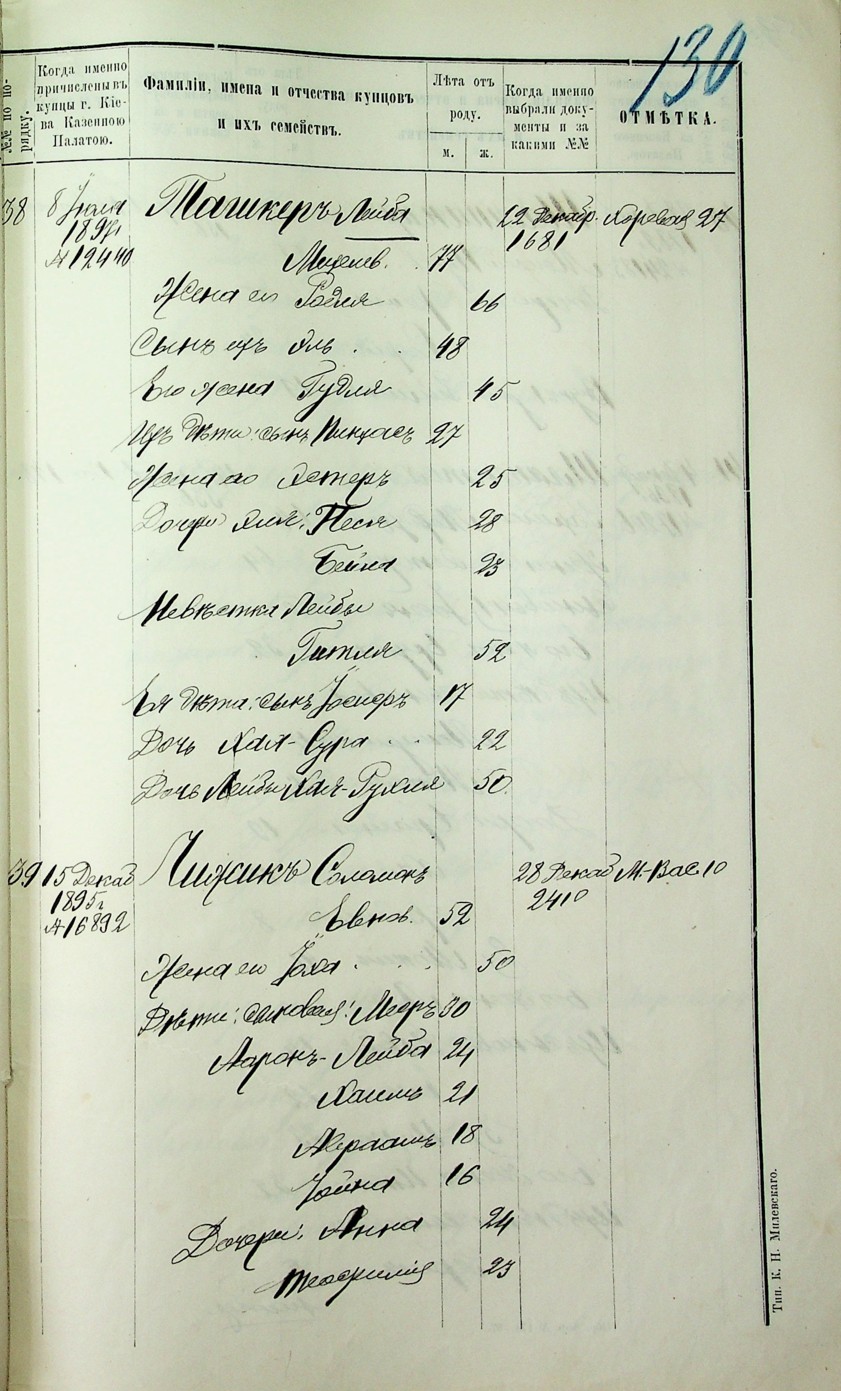 130
№№ по по-
рядку.
Когда именно
причислены въ
купцы г. Кіе-
ва Казенною
Палатою.
Фамиліи, имена и отчества купцовъ
и ихъ семействъ.
Лѣта отъ
роду.
м. ж.
Когда именно
выбрали доку-
менты и за
какими №№
ОТМѢТКА.
38 8 Іюля Ташкеръ Лейба 22 Декабр. Хоревая 27
№ 12440 1681
77
Жена его Родля 66
Сынъ ихъ Эль 48
Его жена Гудля 45
Ихъ дѣти: сынъ Пинхасъ 27
Жена его Эстеръ 25
Дочери Эля: Песя 28
Бейла 23
Невѣстка Лейбы
Гитля 52
Ея дѣти: сынъ Іосифъ 17
Дочь Хая-Сура 22
Дочь Лейбы Хая-Рухля 50
39 15 Декаб Чижикъ Соломонъ 28 Декаб М.-Вас 10
1895 г. 2410
№ 16892 Евнов. 52
Жена его Іоха 50
Дѣти: сыновья: Мееръ 30
Ааронъ-Лейба 24
Хаимъ 21
Авраамъ 18
Іойна 16
Дочери: Анна 24
Теофилія 23
Тип. К. Н. Милевскаго.